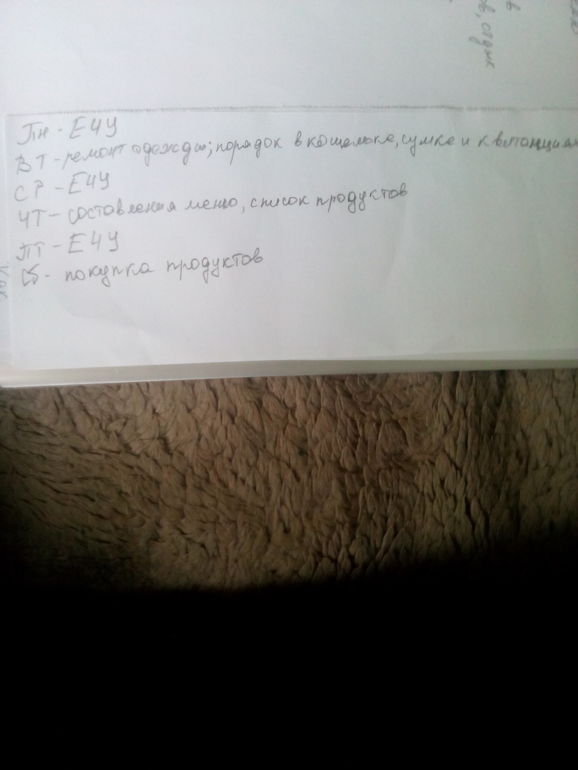 Пн - ЕЧУ
ВТ - ремонт одежды; порядок в кошельке, сумке и квитанциях
СР - ЕЧУ
ЧТ - составления меню, список продуктов
ПТ - ЕЧУ
Сб - покупка продуктов